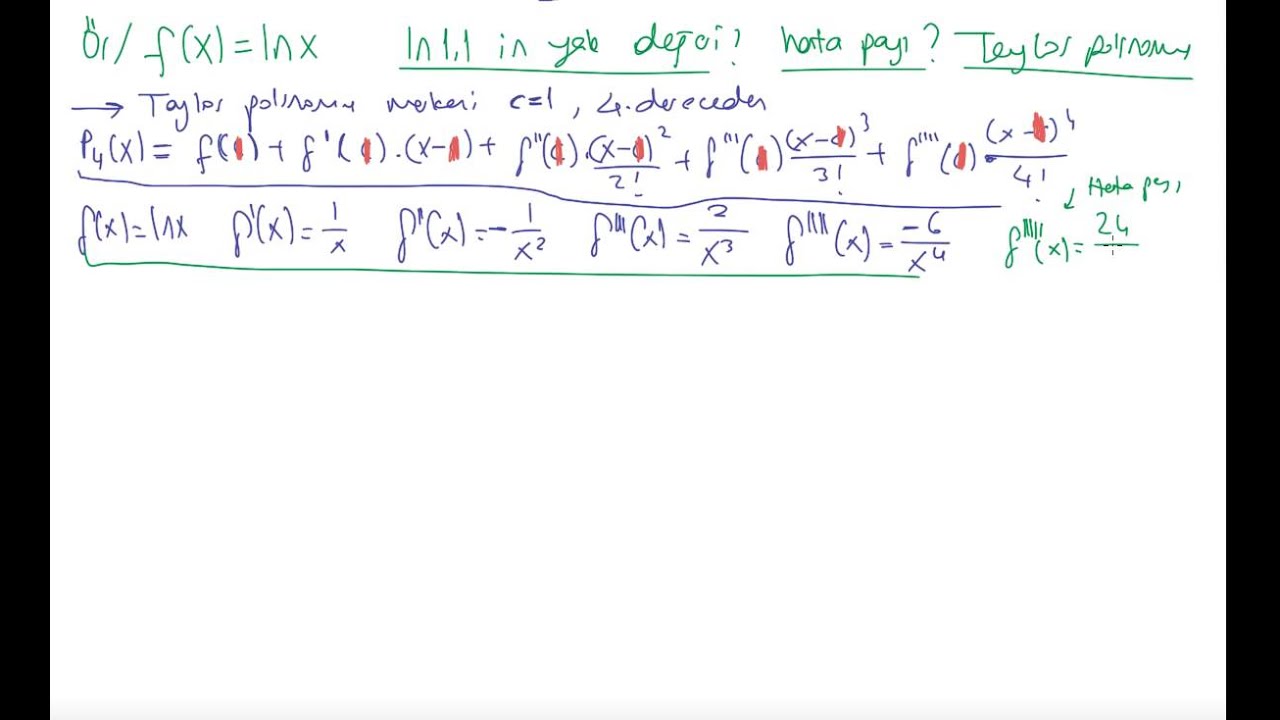 Ör/ f(x) = ln x ln 1,1 in yak değeri? hata payı? Taylor polinomu
→ Taylor polinomu merkezi c=1, 4. dereceden
P₄(x) = f(1) + f'(1).(x-1) + f''(1).(x-1)²/2! + f'''(1)(x-1)³/3! + f''''(1).(x-1)⁴/4!
↓ Hata payı
f(x) = ln x f'(x) = 1/x f''(x) = -1/x² f'''(x) = 2/x³ f''''(x) = -6/x⁴ f'''''(x) = 24/